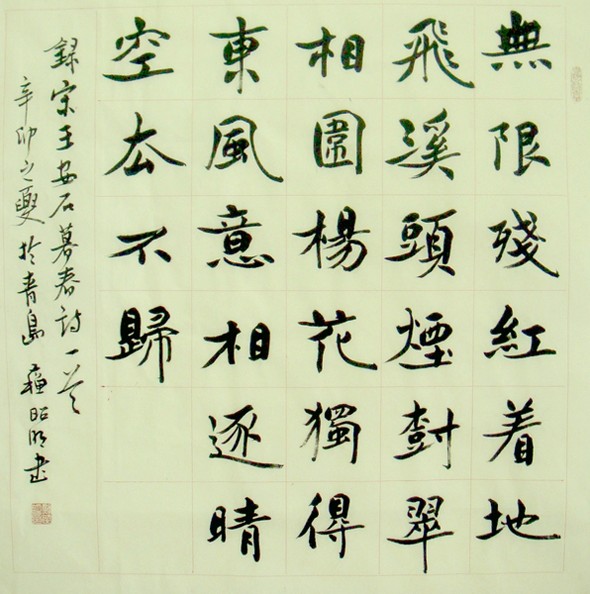 無限殘紅着地
飛溪頭煙樹翠
相圍楊花獨得
東風意相逐晴
空去不歸
錄宋王安石暮春詩一首
辛卯之夏於青島 蘇昭明書